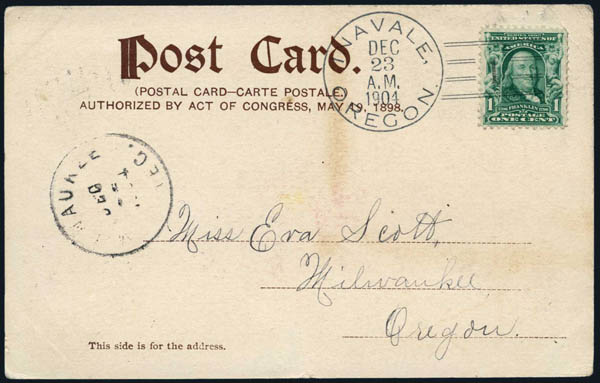 Post Card.
(POSTAL CARD—CARTE POSTALE.)
AUTHORIZED BY ACT OF CONGRESS, MAY 19, 1898.
NAVALE, OREGON.
DEC
23
A.M.
1904
SERIES 1902
UNITED STATES OF
AMERICA
FRANKLIN
1 1
POSTAGE
ONE CENT
WAUKEE
DEC
Miss Eva Scott,
Milwaukee
Oregon.
This side is for the address.